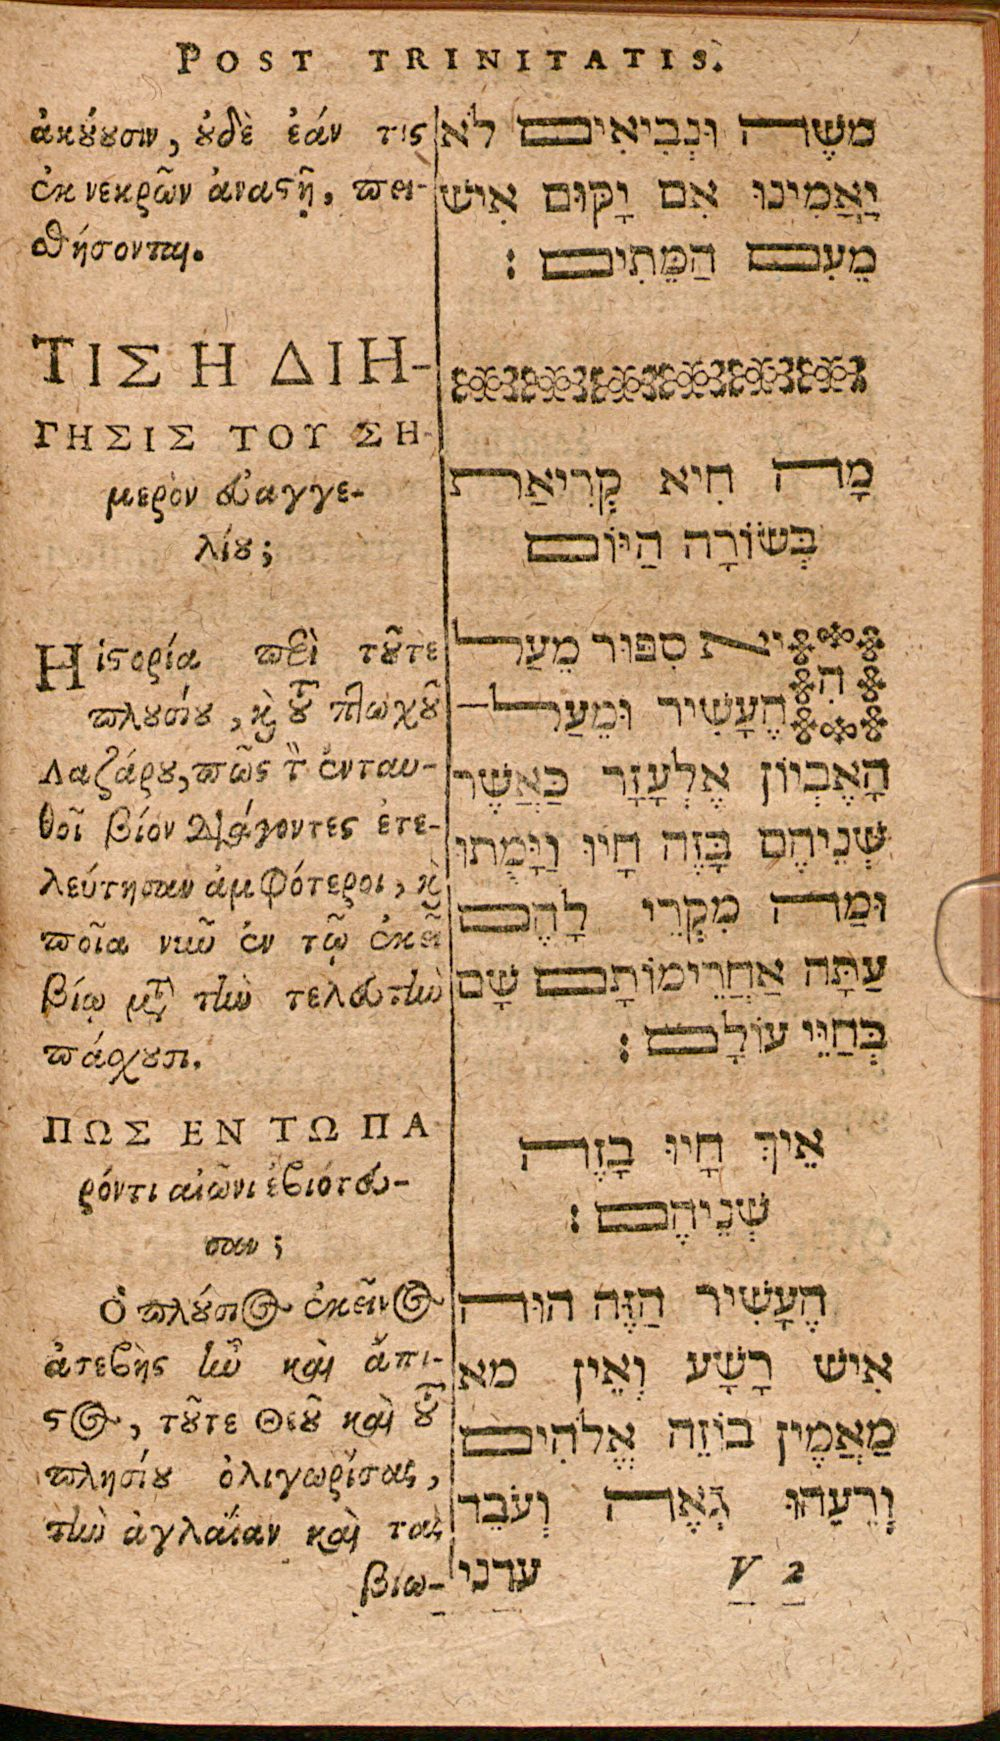 POST TRINITATIS.
ἀκούουσιν, οὐδὲ ἐάν τις
ἐκ νεκρῶν ἀναστῇ, πει-
σθήσονται.
ΤΙΣ Η ΔΙΗ-
ΓΗΣΙΣ ΤΟΥ ΣΗ-
μερὸν εὐαγγε-
λίου;
Ηἱστορία περὶ τοῦτε
πλουσίου, καὶ τοῦ πτωχοῦ
Λαζάρου, πῶς τὸν ἐνταυ-
θοῖ βίον διάγοντες ἐτε-
λεύτησαν ἀμφότεροι, καὶ
ποῖα νῦν ἐν τῷ ἐκεῖ
βίῳ μετὰ τὴν τελευτὴν
πάσχουσι.
ΠΩΣ ΕΝ ΤΩ ΠΑ
ρόντι αἰῶνι ἐβιότευ-
σαν;
Ὁ πλούσιος ἐκεῖνος
ἀσεβὴς ἦν καὶ ἄπι-
στος, τοῦτε Θεοῦ καὶ τοῦ
πλησίου ὀλιγωρίσας,
τὴν ἀγλαΐαν καὶ τὰς
βιω-
מֹשֶׁה וּנְבִיאִים לֹא
יַאֲמִינוּ אִם יָקוּם אִישׁ
מֵעִם הַמֵּתִים :
מָה הִיא קְרִיאַת
בְּשׂוֹרָה הַיּוֹם
הִיא סִפּוּר מֵעַל
הֶעָשִׁיר וּמֵעַל
הָאֶבְיוֹן אֶלְעָזָר כַּאֲשֶׁר
שְׁנֵיהֶם בָּזֶה חָיוּ וַיָּמֻתוּ
וּמַה מִקְרֵי לָהֶם
עַתָּה אַחֲרֵימוֹתָם שָׁם
בְּחַיֵּי עוֹלָם :
אֵיךְ חָיוּ בָזֶה
שְׁנֵיהֶם :
הֶעָשִׁיר הַזֶּה הוּה
אִישׁ רָשָׁע וְאֵין מא
מַאֲמִין בּוֹזֵה אֱלֹהִים
וְרֵעֵהוּ גֵּאֶה וְעֹבֵד
עדני
V 2